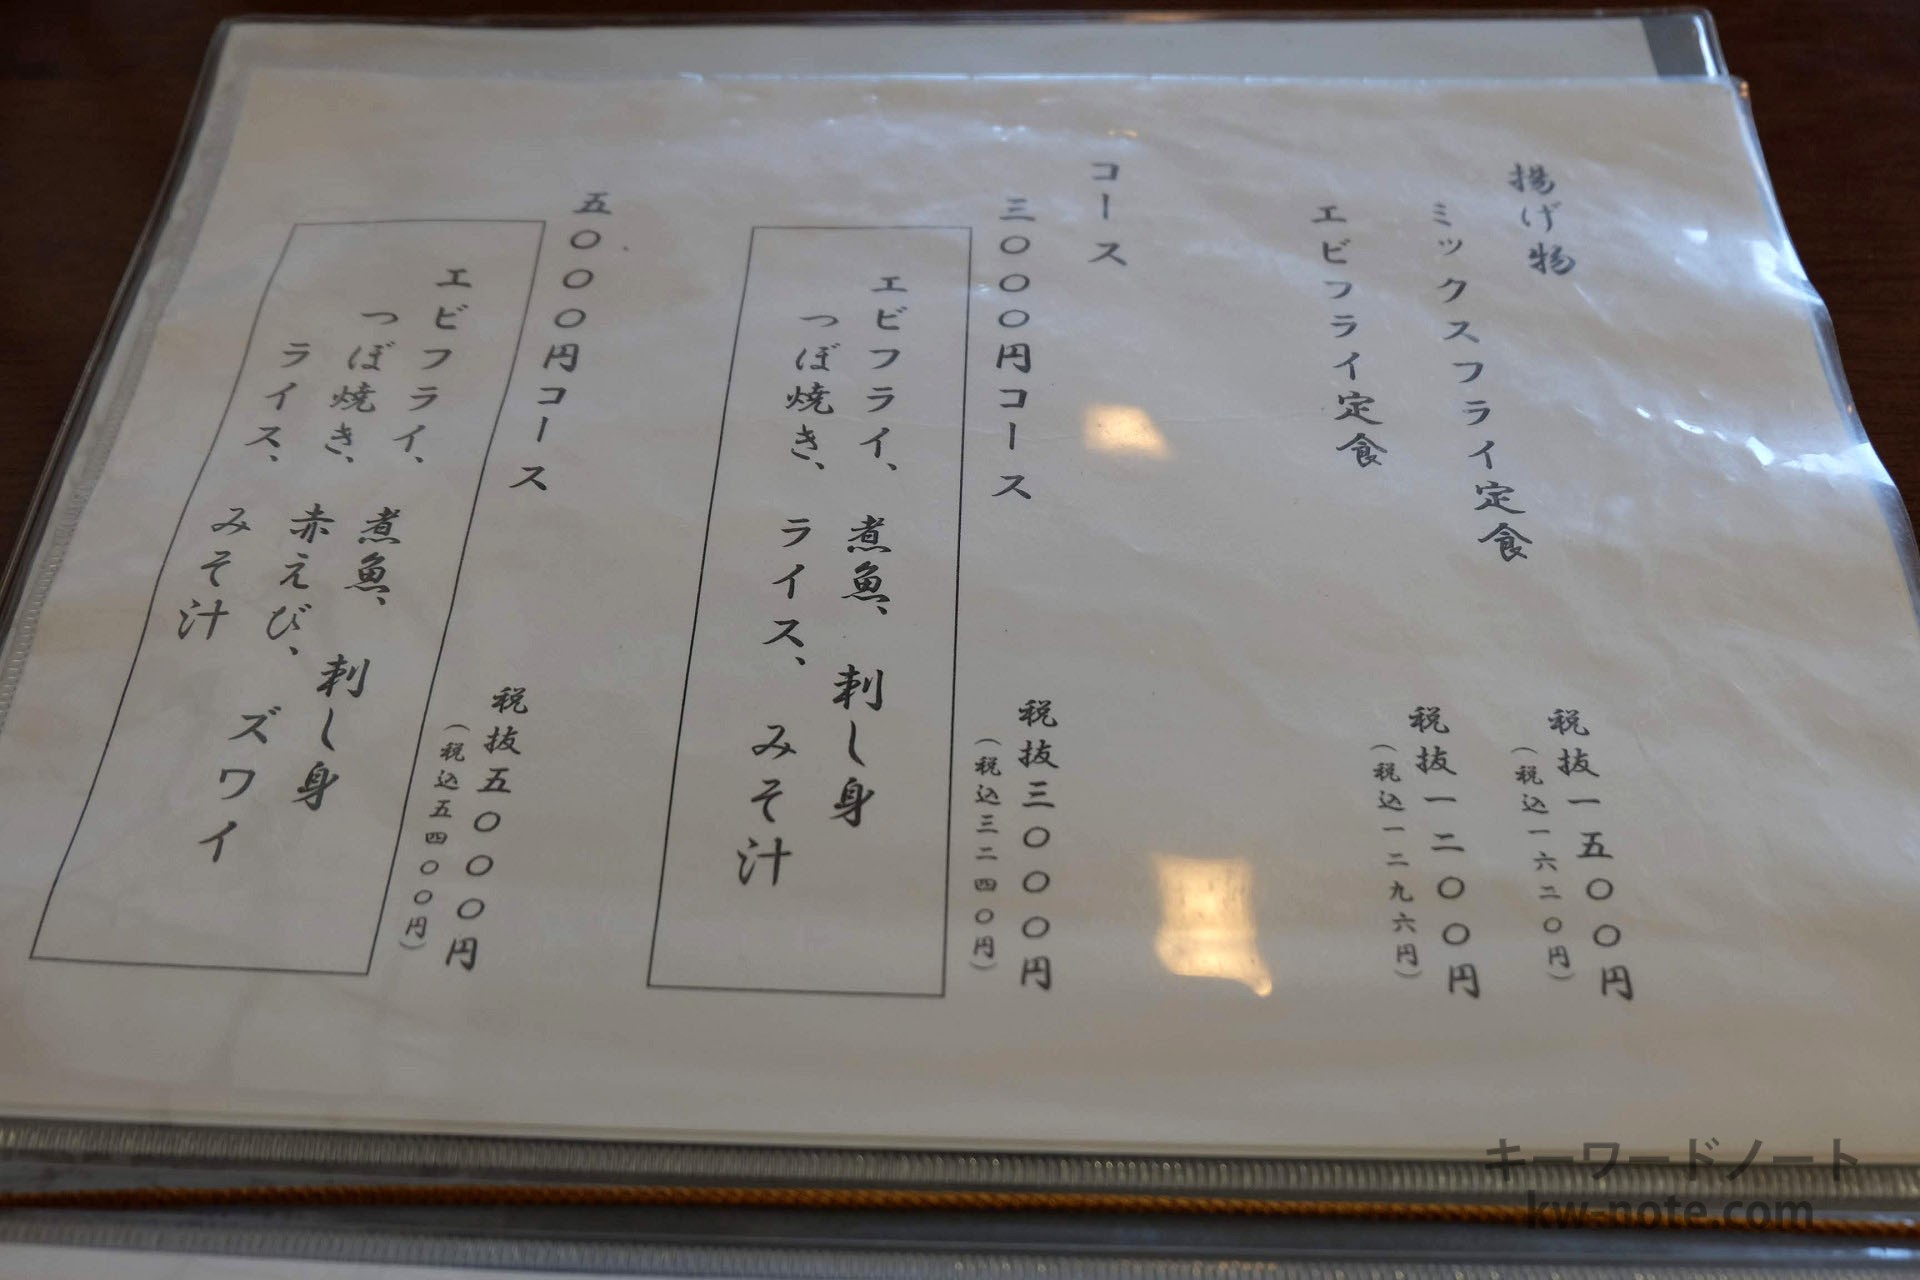 揚げ物
ミックスフライ定食 税抜一五〇〇円
(税込一六二〇円)
エビフライ定食 税抜一二〇〇円
(税込一二九六円)
コース
三〇〇〇円コース 税抜三〇〇〇円
(税込三二四〇円)
エビフライ、 煮魚、 刺し身
つぼ焼き、 ライス、 みそ汁
五〇〇〇円コース 税抜五〇〇〇円
(税込五四〇〇円)
エビフライ、 煮魚、 刺し身
つぼ焼き、 赤えび、 ズワイ
ライス、 みそ汁
キーワードノート
kw-note.com